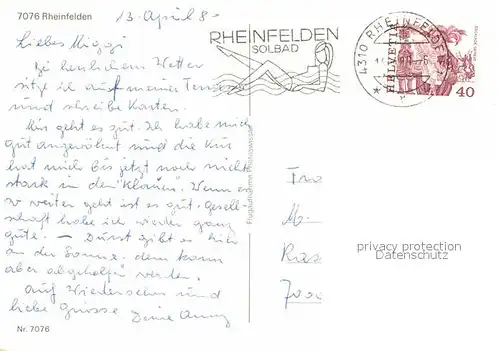 7076 Rheinfelden
13. April 8
RHEINFELDEN
SOLBAD
4310 RHEINFELDEN 1
HELVETIA
40
Liebes
Bei herrlichem Wetter
sitze ich auf meiner
und schreibe Karten.
Mir geht es gut. Ich habe mich
gut angewöhnt und die Kur
hat mich bis jetzt noch nicht
stark in den "Klauen". Wenn es
so weiter geht ist es gut. Gesell-
schaft habe ich wieder ganz
gute. – Durst gibt es hier
an der Sonne, dem kann
aber abgeholfen werden.
Auf Wiedersehen und
liebe Grüsse Deine Anny
Nr. 7076
M.
7000
privacy protection
VonAnsichtskarten